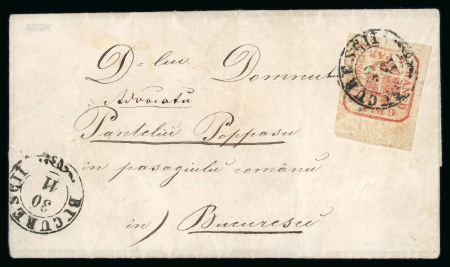 D=lui Domnul
Advocatu
Panteliu Poppasu
în pasagiulu românu
in) Bucurescu
BUCURESCII
30
11
BUCURESCII